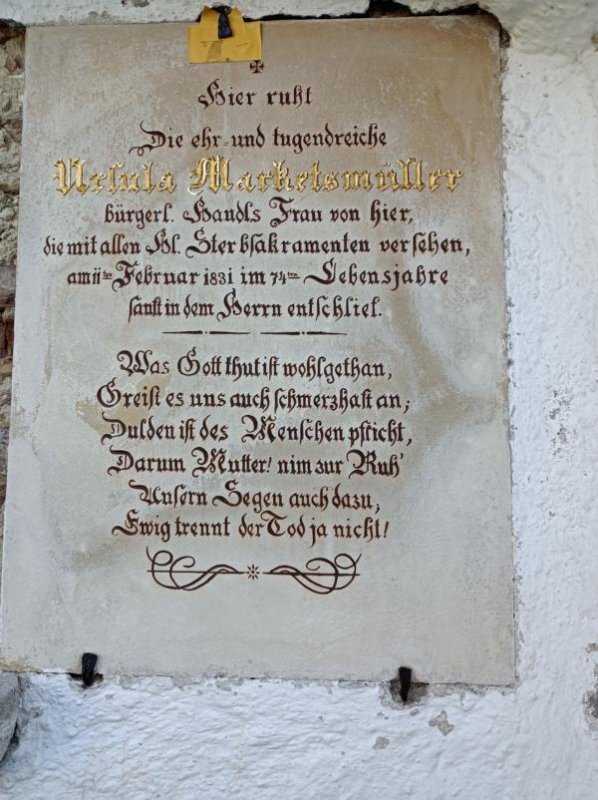 Hier ruht
Die ehr- und tugendreiche
Ursula Marketsmüller
bürgerl. Handls Frau von hier,
die mit allen Hl. Sterbsakramenten versehen,
am 11ten Februar 1831 im 74ten Lebensjahre
sanft in dem Herrn entschlief.
Was Gott thut ist wohlgethan,
Greift es uns auch schmerzhaft an;
Dulden ist des Menschen pflicht,
Darum Mutter! nim zur Ruh'
Unsern Segen auch dazu,
Ewig trennt der Tod ja nicht!